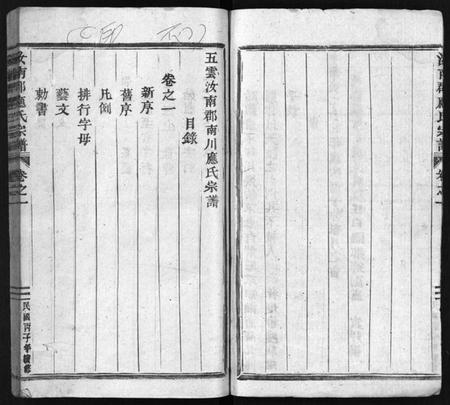 五雲汝南郡南川應氏宗譜
目錄
卷之一
新序
舊序
凡例
排行字母
藝文
勅書
汝南郡應氏宗譜
卷之一
民國丙子年續修
汝南郡應氏宗譜
卷之一